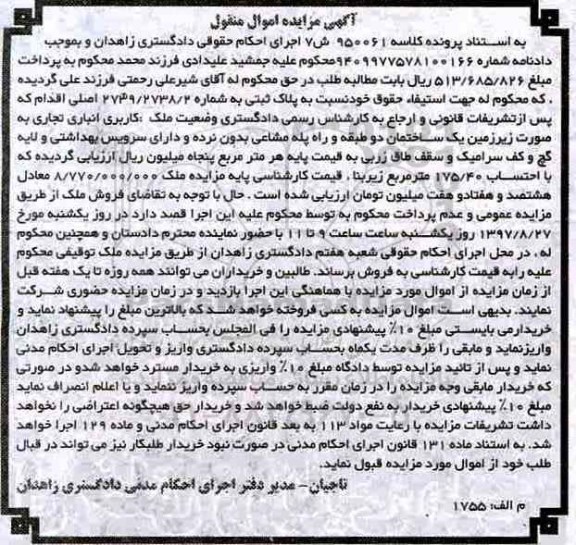 آگهی مزایده اموال منقول
به استناد پرونده کلاسه ۹۵۰۰۶۱ ش۷ اجرای احکام حقوقی دادگستری زاهدان و بموجب
دادنامه شماره ۹۴۰۹۹۷۷۵۷۸۱۰۰۱۶۶محکوم علیه جمشید علیدادی فرزند محمد محکوم به پرداخت
مبلغ ۵۱۳/۶۸۵/۸۲۶ ریال بابت مطالبه طلب در حق محکوم له آقای شیرعلی رحمتی فرزند علی گردیده
، که محکوم له جهت استیفاء حقوق خودنسبت به پلاک ثبتی به شماره اصلی اقدام که
پس ازتشریفات قانونی و ارجاع به کارشناس رسمی دادگستری وضعیت ملک :کاربری انباری تجاری به
صورت زیرزمین یک ساختمان دو طبقه و راه پله مشاعی بدون نرده و دارای سرویس بهداشتی و لایه
گچ و کف سرامیک و سقف طاق زربی به قیمت پایه هر متر مربع پنجاه میلیون ریال ارزیابی گردیده که
با احتساب ۱۷۵/۴۰ مترمربع زیربنا ، قیمت کارشناسی پایه مزایده ملک ۸/۷۷۰/۰۰۰/۰۰۰ معادل
هشتصد و هفتادو هفت میلیون تومان ارزیابی شده است . حال با توجه به تقاضای فروش ملک از طریق
مزایده عمومی و عدم پرداخت محکوم به توسط محکوم علیه این اجرا قصد دارد در روز یکشنبه مورخ
۱۳۹۷/۸/۲۷ روز یکشنبه ساعت ساعت ۹ تا ۱۱ با حضور نماینده محترم دادستان و همچنین محکوم
له ، در محل اجرای احکام حقوقی شعبه هفتم دادگستری زاهدان از طریق مزایده ملک توقیفی محکوم
علیه رابه قیمت کارشناسی به فروش برساند. طالبین و خریداران می توانند همه روزه تا یک هفته قبل
از زمان مزایده از اموال مورد مزایده با هماهنگی این اجرا بازدید و در زمان مزایده حضوری شرکت
نمایند. بدیهی است اموال مزایده به کسی فروخته خواهد شد که بالاترین مبلغ را پیشنهاد نماید و
خریدارمی بایستی مبلغ ۱۰٪ پیشنهادی مزایده را فی المجلس بحساب سپرده دادگستری زاهدان
واریزنماید و مابقی را ظرف مدت یکماه بحساب سپرده دادگستری واریز و تحویل اجرای احکام مدنی
نماید و پس از تائید مزایده توسط دادگاه مبلغ ۱۰٪ واریزی به خریدار مسترد خواهد شدو در صورتی
که خریدار مابقی وجه مزایده را در زمان مقرر به حساب سپرده واریز ننماید و یا اعلام انصراف نماید
مبلغ ۱۰٪ پیشنهادی خریدار به نفع دولت ضبط خواهد شد و خریدار حق هیچگونه اعتراضی را نخواهد
داشت تشریفات مزایده با رعایت مواد ۱۱۳ به بعد قانون اجرای احکام مدنی و ماده ۱۲۹ اجرا خواهد
شد. به استناد ماده ۱۳۱ قانون اجرای احکام مدنی در صورت نبود خریدار طلبکار نیز می تواند در قبال
طلب خود از اموال مورد مزایده قبول نماید.
تاجیان- مدیر دفتر اجرای احکام مدنی دادگستری زاهدان
م الف: ۱۷۵۵